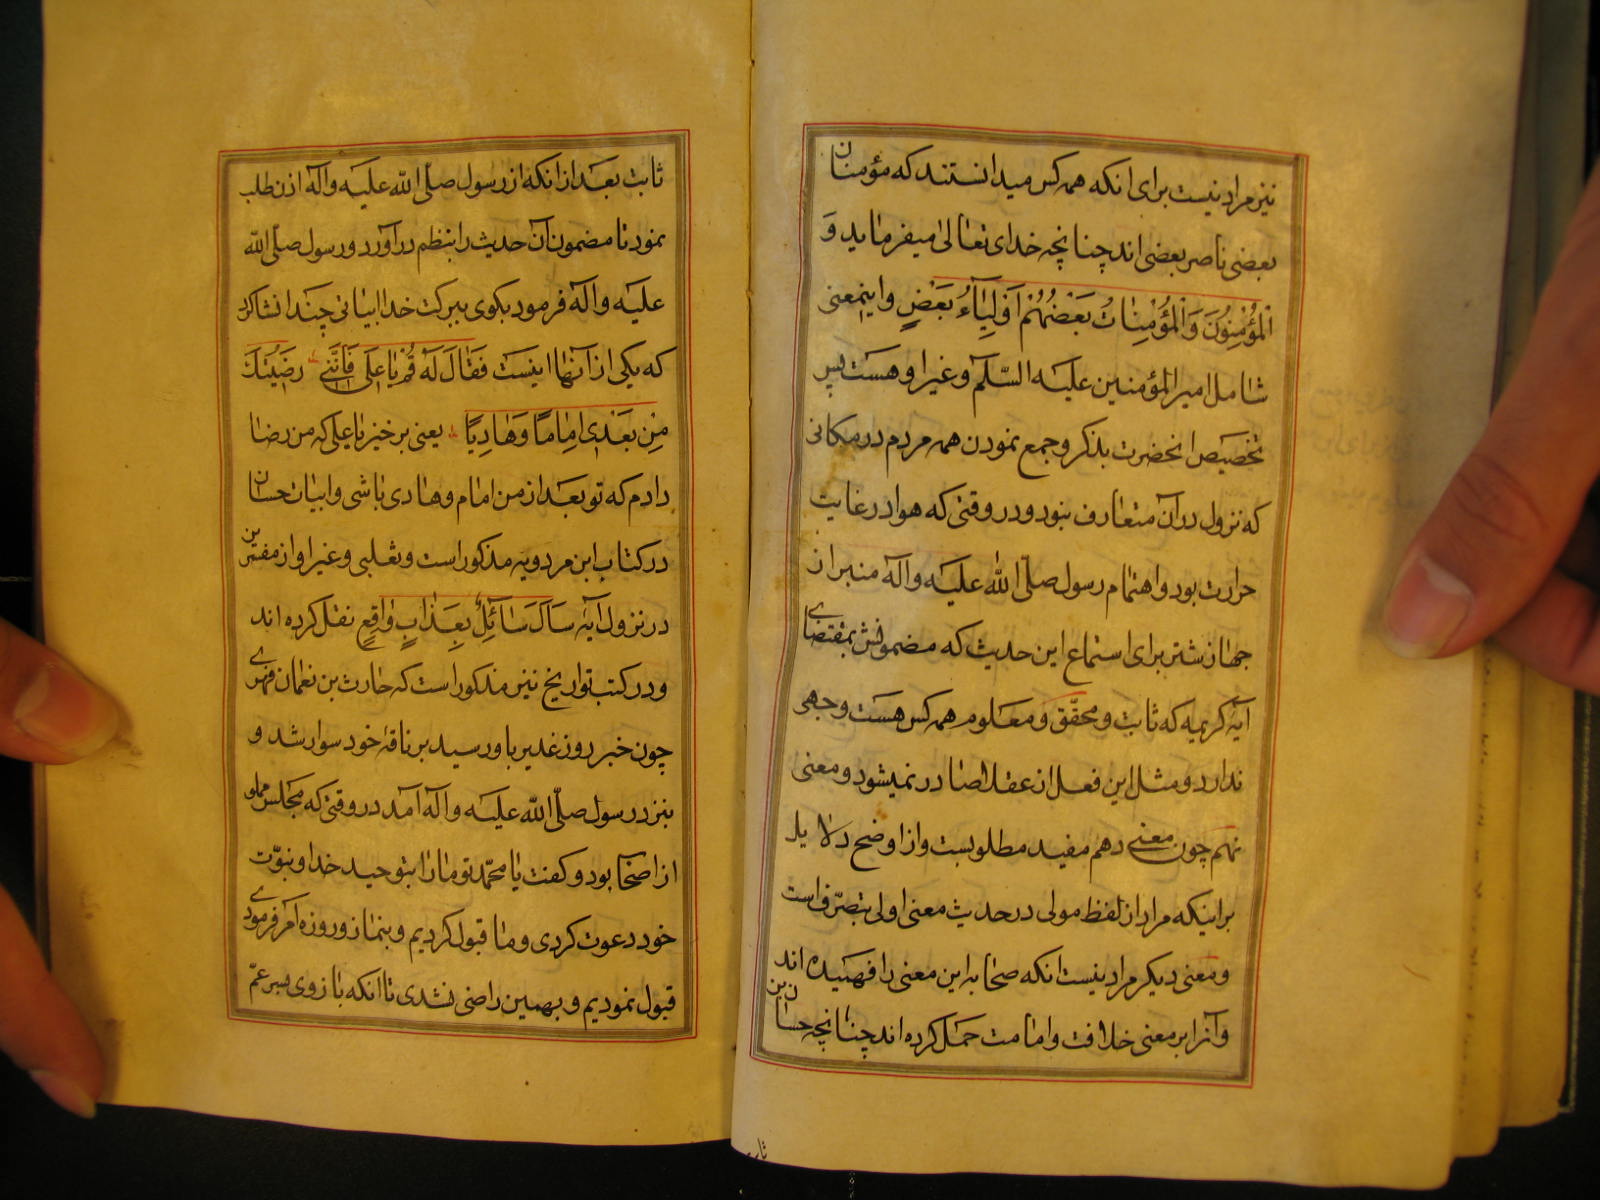 نیز مراد نیست برای انکه همه کس میدانستند که مؤمنان
بعضی ناصر بعضی اند چنانچه خدای تعالی میفرماید وَ
الْمُؤْمِنُونَ وَالْمُؤْمِنَاتُ بَعْضُهُمْ اَوْلِیَآءُ بَعْضٍ و اینمعنی
شامل امیرالمؤمنین علیه السّلم و غیر او هست پس
تخصیص انحضرت بذکر و جمع نمودن همه مردم در مکانی
که نزول در آن متعارف نبود و در وقتی که هوا در غایت
حرارت بود و اهتمام رسول صلّی اللّه علیه وآله منبر از
جهاز شتر برای استماع این حدیث که مضمونش بمقتضای
آیۀ کریمه که ثابت و محقّق و معلوم همه کس هست وجهی
ندارد و مثل این فعل از عقلا صادر نمیشود و معنی
نهم چون معنی دهم مفید مطلوبست و از اوضح دلایل
براینکه مراد از لفظ مولی در حدیث معنی اولی بتصرّف است
و معنی دیکر مراد نیست انکه صحابه این معنی را فهمیده اند
و آنرا بر معنی خلافت و امامت حمل کرده اند چنانچه حسان بن
ثابت
ثابت بعد از انکه از رسول صلّی اللّه علیه وآله اذن طلب
نمود تا مضمون آن حدیث را بنظم در آورد و رسول صلّی اللّه
علیه وآله فرمود بکوی ببرکت خدا ابیاتی چند انشا کرد
که یکی از آنها اینست فَقَالَ لَهُ قُمْ یَا عَلَی فَاِنَّنِی رَضِیتُکَ
مِنْ بَعْدِی اِمَامًا وَهَادِیًا یعنی برخیز یا علی که من رضا
دادم که تو بعد از من امام و هادی باشی و ابیات حسان
در کتاب ابن مردویه مذکور است و ثعلبی و غیر او از مفسّرین
در نزول آیۀ سَاَلَ سَآئِلٌ بِعَذَابٍ وَاقِعٍ نقل کرده اند
و در کتب تواریخ نیز مذکور است که حارث بن نعمان فهری
چون خبر روز غدیر باو رسید بر ناقۀ خود سوار شد و
بنزد رسول صلّی اللّه علیه وآله آمد در وقتی که مجلس مملو
از اصحاب بود و کفت یا محمّد تو ما را بتوحید خدا و نبوّت
خود دعوت کردی و ما قبول کردیم و بنماز و روزه امر فرمودی
قبول نمودیم و بهمین راضی نشدی تا انکه بازوی پسر عمّ